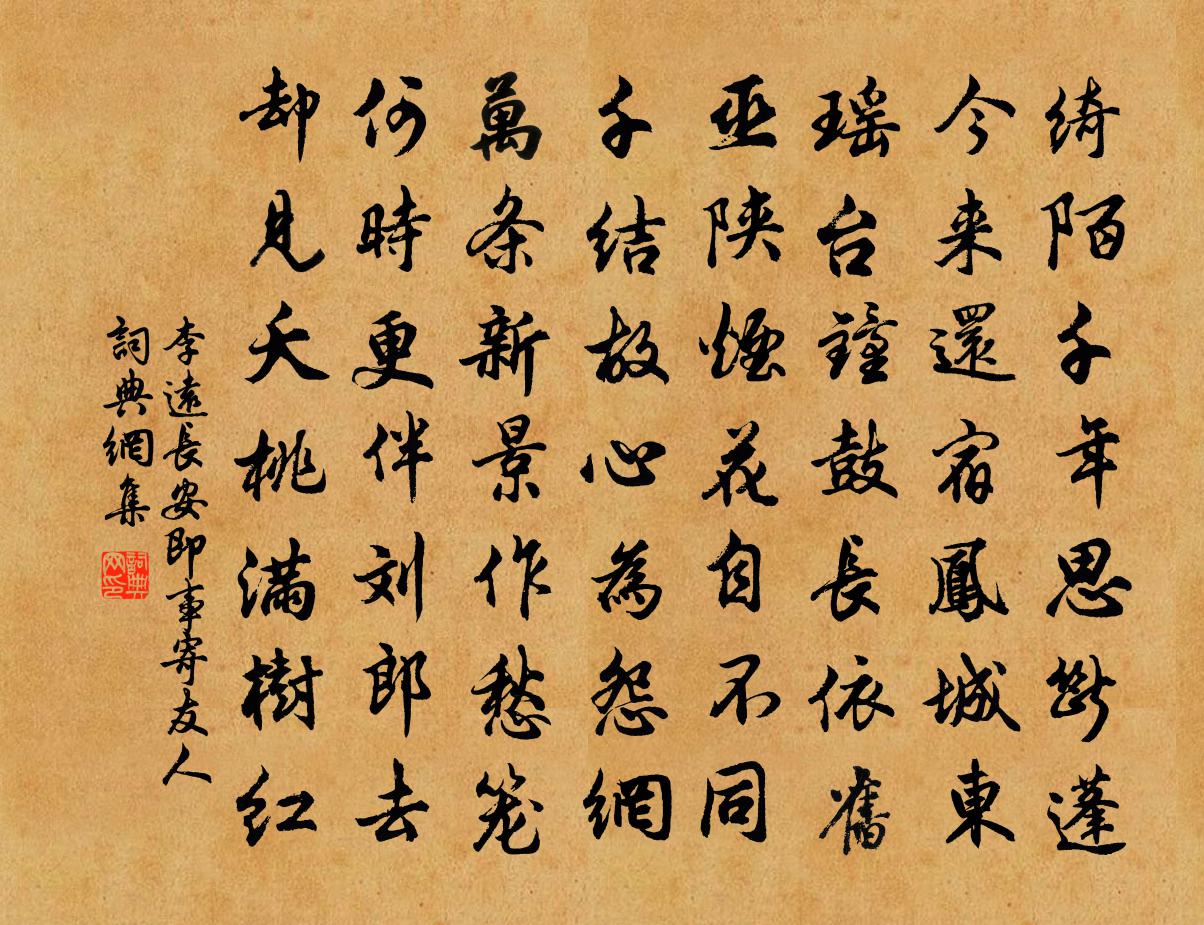 绮陌千年思断蓬
今来還宿鳳城東
瑶台鐘鼓長依舊
巫陕煙花自不同
千结故心為怨網
萬条新景作愁笼
何時更伴刘郎去
却見夭桃满樹红
李遠長安即事寄友人
詞典網集
詞典网印